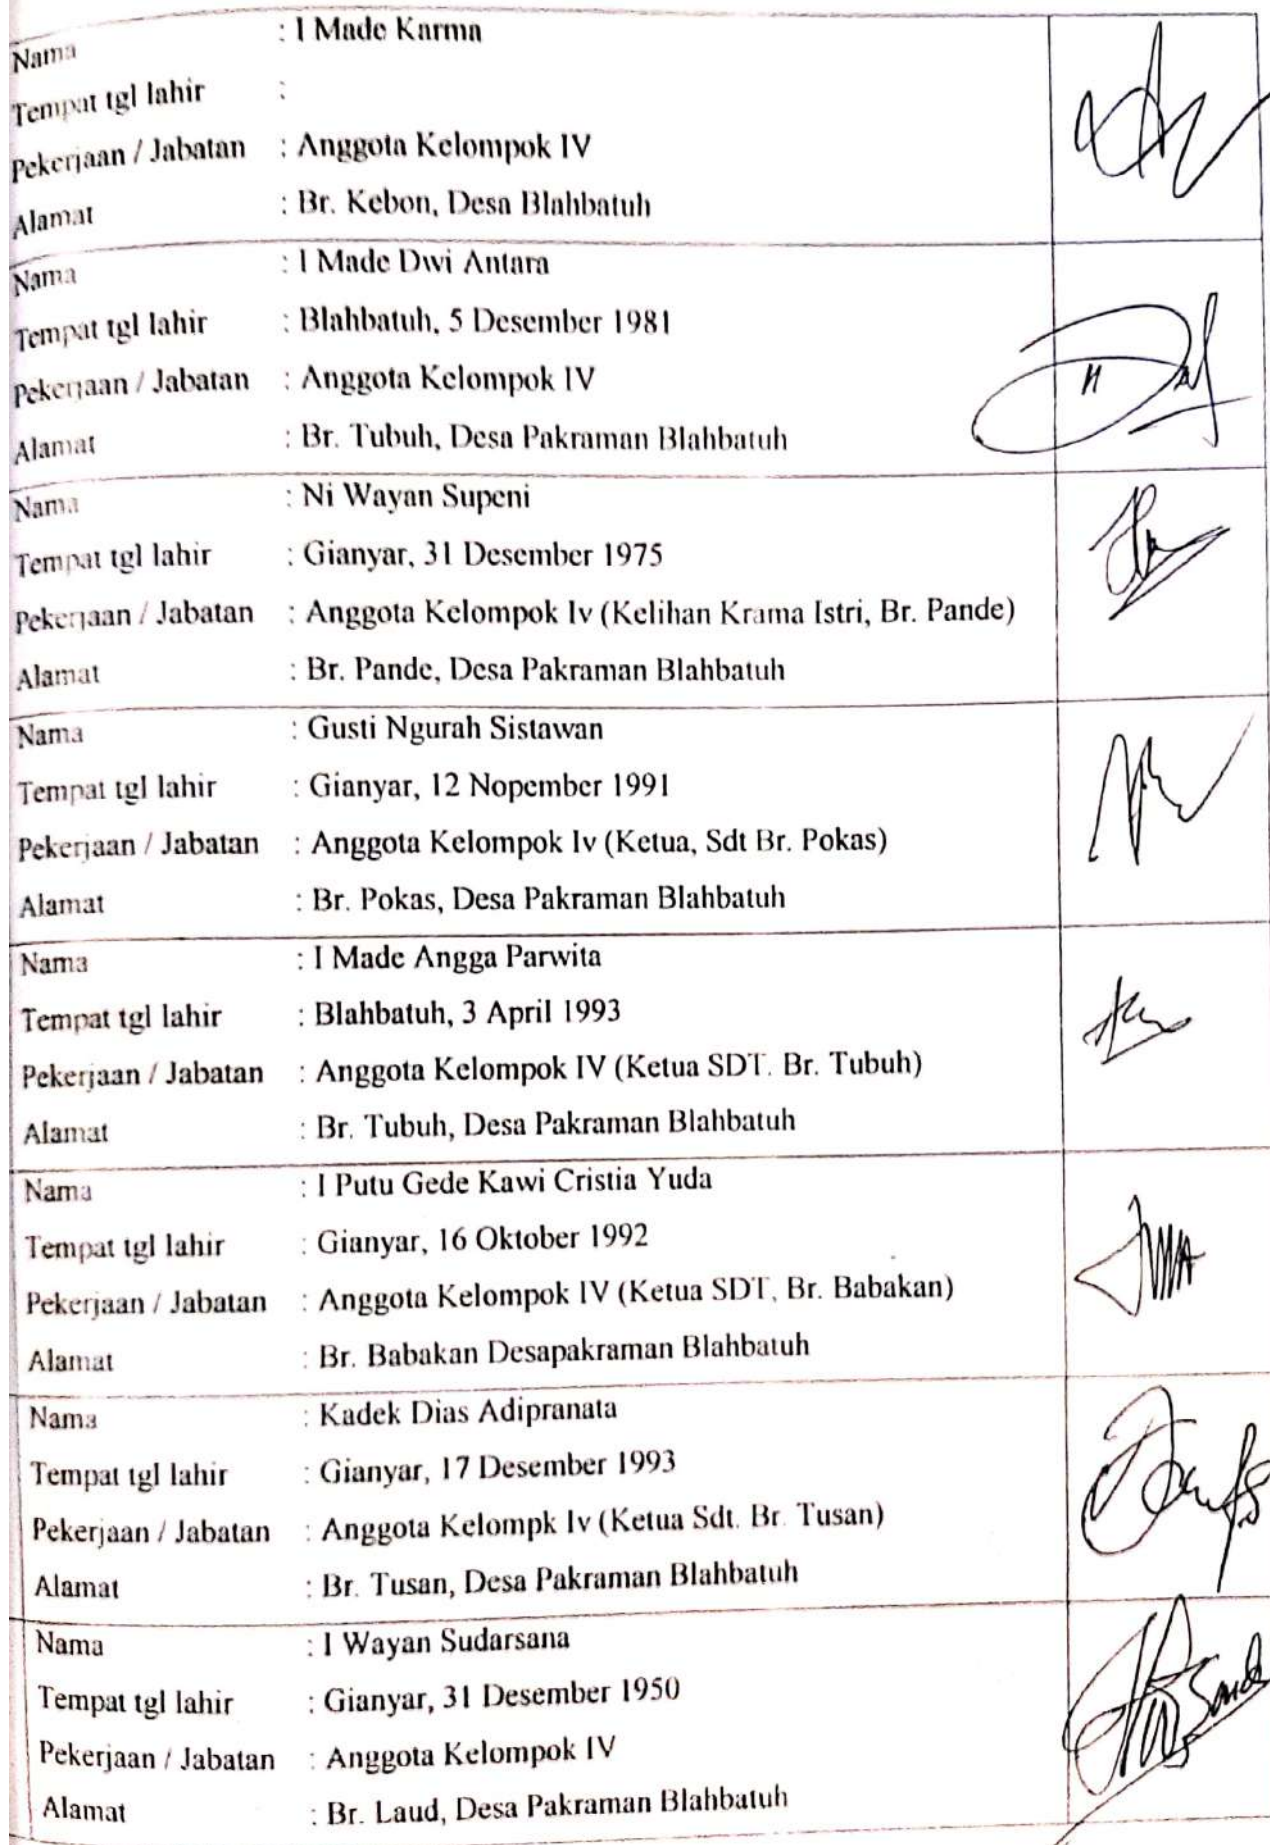 Nama : I Made Karma
Tempat tgl lahir :
Pekerjaan / Jabatan : Anggota Kelompok IV
Alamat : Br. Kebon, Desa Blahbatuh
Nama : I Made Dwi Antara
Tempat tgl lahir : Blahbatuh, 5 Desember 1981
Pekerjaan / Jabatan : Anggota Kelompok IV
Alamat : Br. Tubuh, Desa Pakraman Blahbatuh
Nama : Ni Wayan Supeni
Tempat tgl lahir : Gianyar, 31 Desember 1975
Pekerjaan / Jabatan : Anggota Kelompok Iv (Kelihan Krama Istri, Br. Pande)
Alamat : Br. Pande, Desa Pakraman Blahbatuh
Nama : Gusti Ngurah Sistawan
Tempat tgl lahir : Gianyar, 12 Nopember 1991
Pekerjaan / Jabatan : Anggota Kelompok Iv (Ketua, Sdt Br. Pokas)
Alamat : Br. Pokas, Desa Pakraman Blahbatuh
Nama : I Made Angga Parwita
Tempat tgl lahir : Blahbatuh, 3 April 1993
Pekerjaan / Jabatan : Anggota Kelompok IV (Ketua SDT. Br. Tubuh)
Alamat : Br. Tubuh, Desa Pakraman Blahbatuh
Nama : I Putu Gede Kawi Cristia Yuda
Tempat tgl lahir : Gianyar, 16 Oktober 1992
Pekerjaan / Jabatan : Anggota Kelompok IV (Ketua SDT, Br. Babakan)
Alamat : Br. Babakan Desapakraman Blahbatuh
Nama : Kadek Dias Adipranata
Tempat tgl lahir : Gianyar, 17 Desember 1993
Pekerjaan / Jabatan : Anggota Kelompk Iv (Ketua Sdt. Br. Tusan)
Alamat : Br. Tusan, Desa Pakraman Blahbatuh
Nama : I Wayan Sudarsana
Tempat tgl lahir : Gianyar, 31 Desember 1950
Pekerjaan / Jabatan : Anggota Kelompok IV
Alamat : Br. Laud, Desa Pakraman Blahbatuh